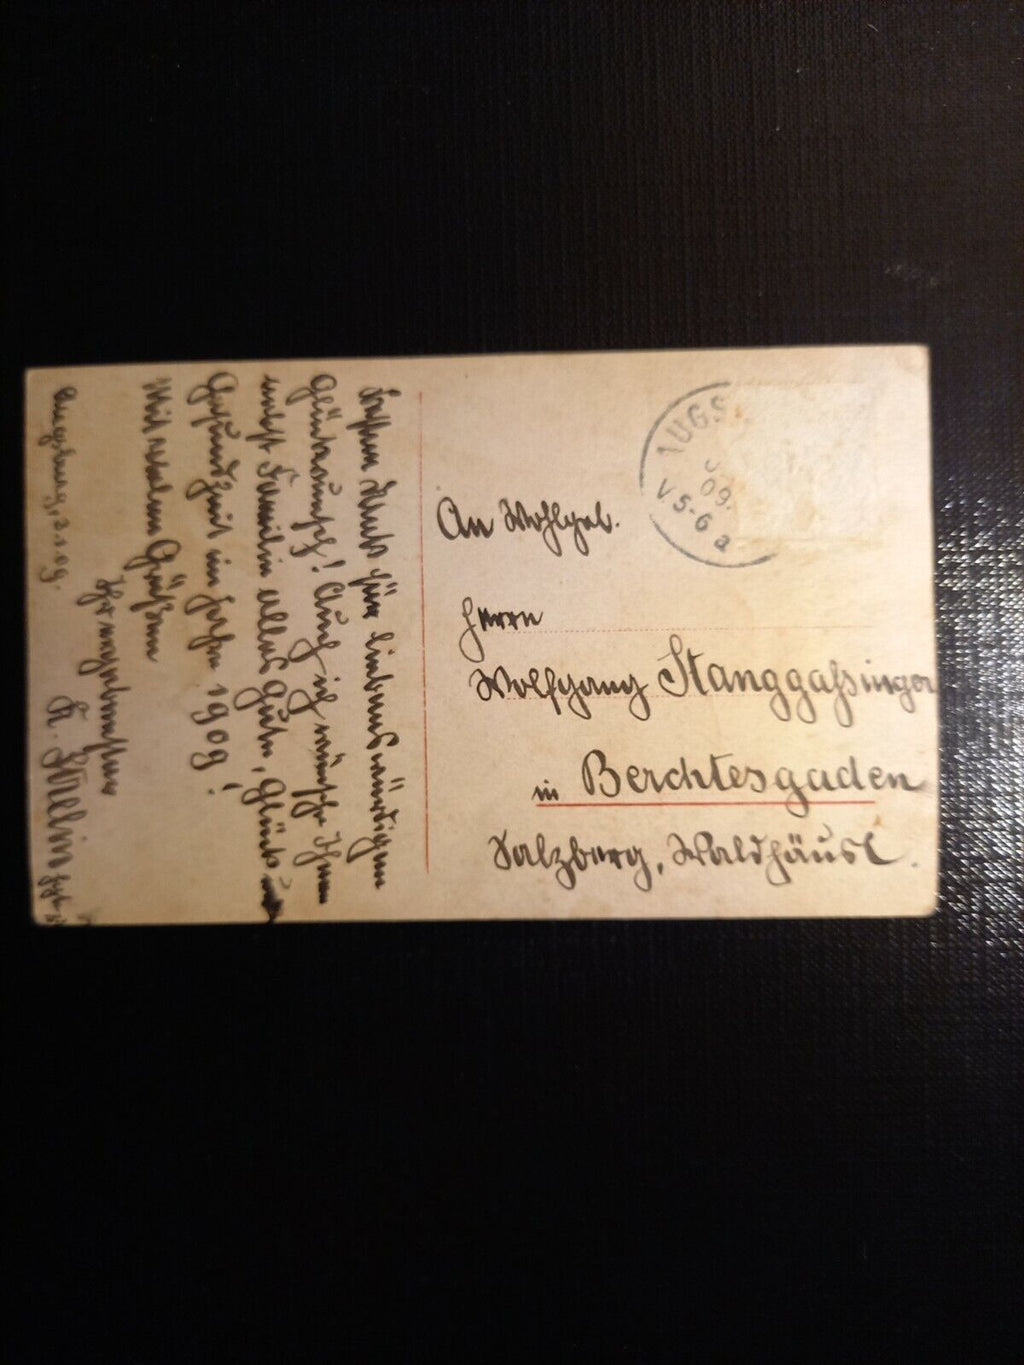 Besten Dank für liebenswürdigen
Glückwunsch! Auch ich wünsche Ihnen
nebst Familie alles Gute, Glück u.
Gesundheit im Jahre 1909!
Mit vielen Grüßen
Ihr ergebenster
Augsburg, 2.1.09.
AUGS
09.
V 5-6
a
An Wohlgeb.
Herrn
Wolfgang Stanggassinger
in Berchtesgaden
Salzberg, Waldhäusl.